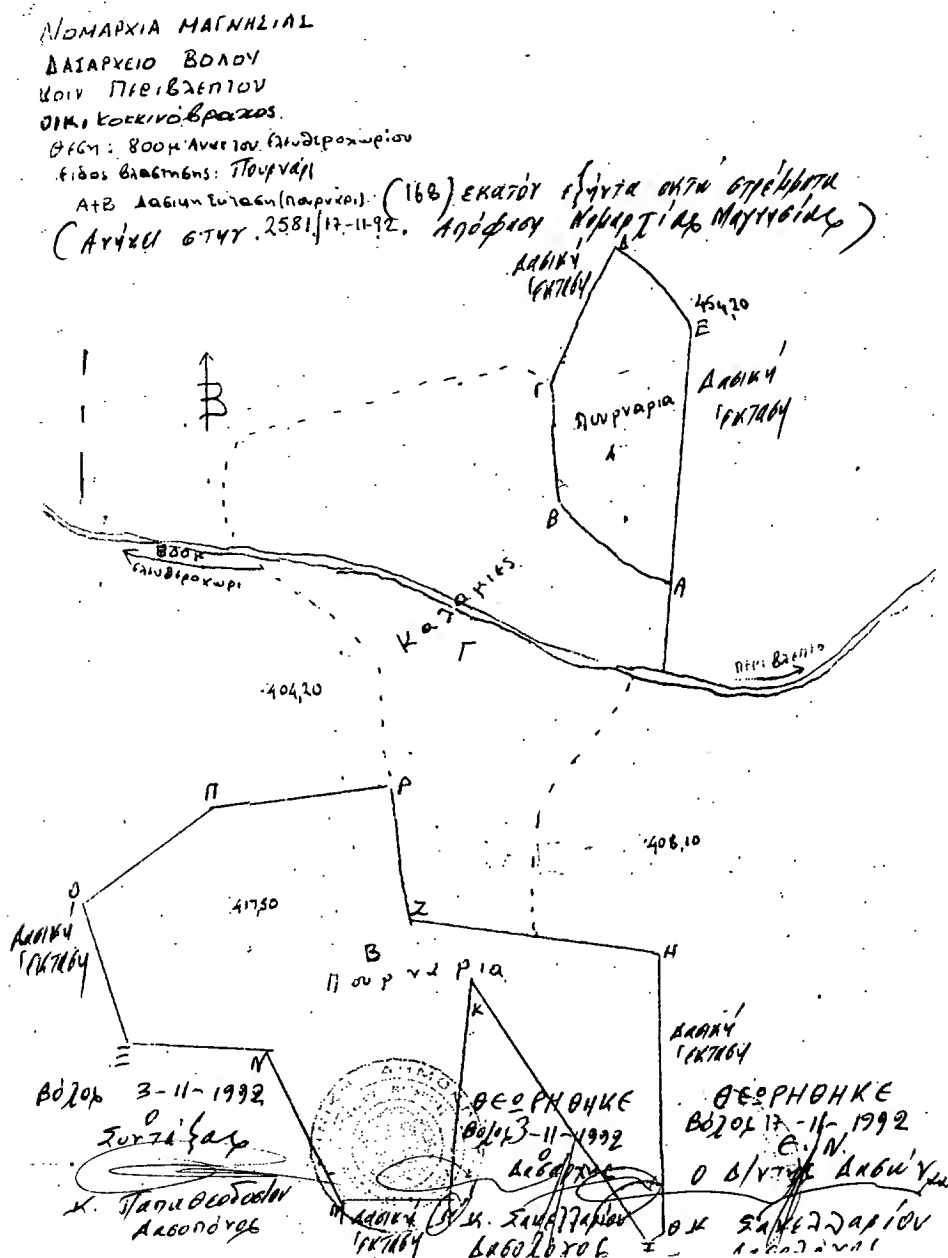 ΝΟΜΑΡΧΙΑ ΜΑΓΝΗΣΙΑΣ
ΔΑΣΑΡΧΕΙΟ ΒΟΛΟΥ
ΚΟΙΝ ΠΕΡΙΒΛΕΠΤΟΥ
ΟΙΚ. Κοκκινόβραχος
ΘΕΣΗ: 800μ Άνωθ. του Ελευθεροχωρίου
Είδος Βλάστησης: Πουρνάρι
Α+Β Δασική Έκταση (πουρνάρι). (168) εκατόν εξήντα οκτώ στρέμματα
(Ανήκει στην .2581/17-11-92. Απόφαση Νομαρχίας Μαγνησίας)
Δασική
έκταση
Δ
454,20
Ε
Β
Γ
Δασική
έκταση
Πουρνάρια
Α
Β
800μ
Ελευθεροχώρι
Α
Καλακιές
Γ
Περίβλεπτο
404,20
Π
Ρ
408,10
Ο
417,50
Ζ
Δασική
έκταση
Η
Β
Πουρνάρια
Κ
Δασική
έκταση
Ξ
Ν
Βόλος 3-11-1992
Ο
Συντάξας
Κ. Παπαθεοδοσίου
Δασοπόνος
ΔΗΜΟ
Μ
Δασική
έκταση
ΘΕΩΡΗΘΗΚΕ
Βόλος 3-11-1992
Ο
Δασάρχης
Κ. Σακελλαρίου
Δασολόγος
Ι
Θ
ΘΕΩΡΗΘΗΚΕ
Βόλος 17-11-1992
Ε.Ν.
Ο Δ/ντής Δασών
Κ Σακελλαρίου
Δασολόγος